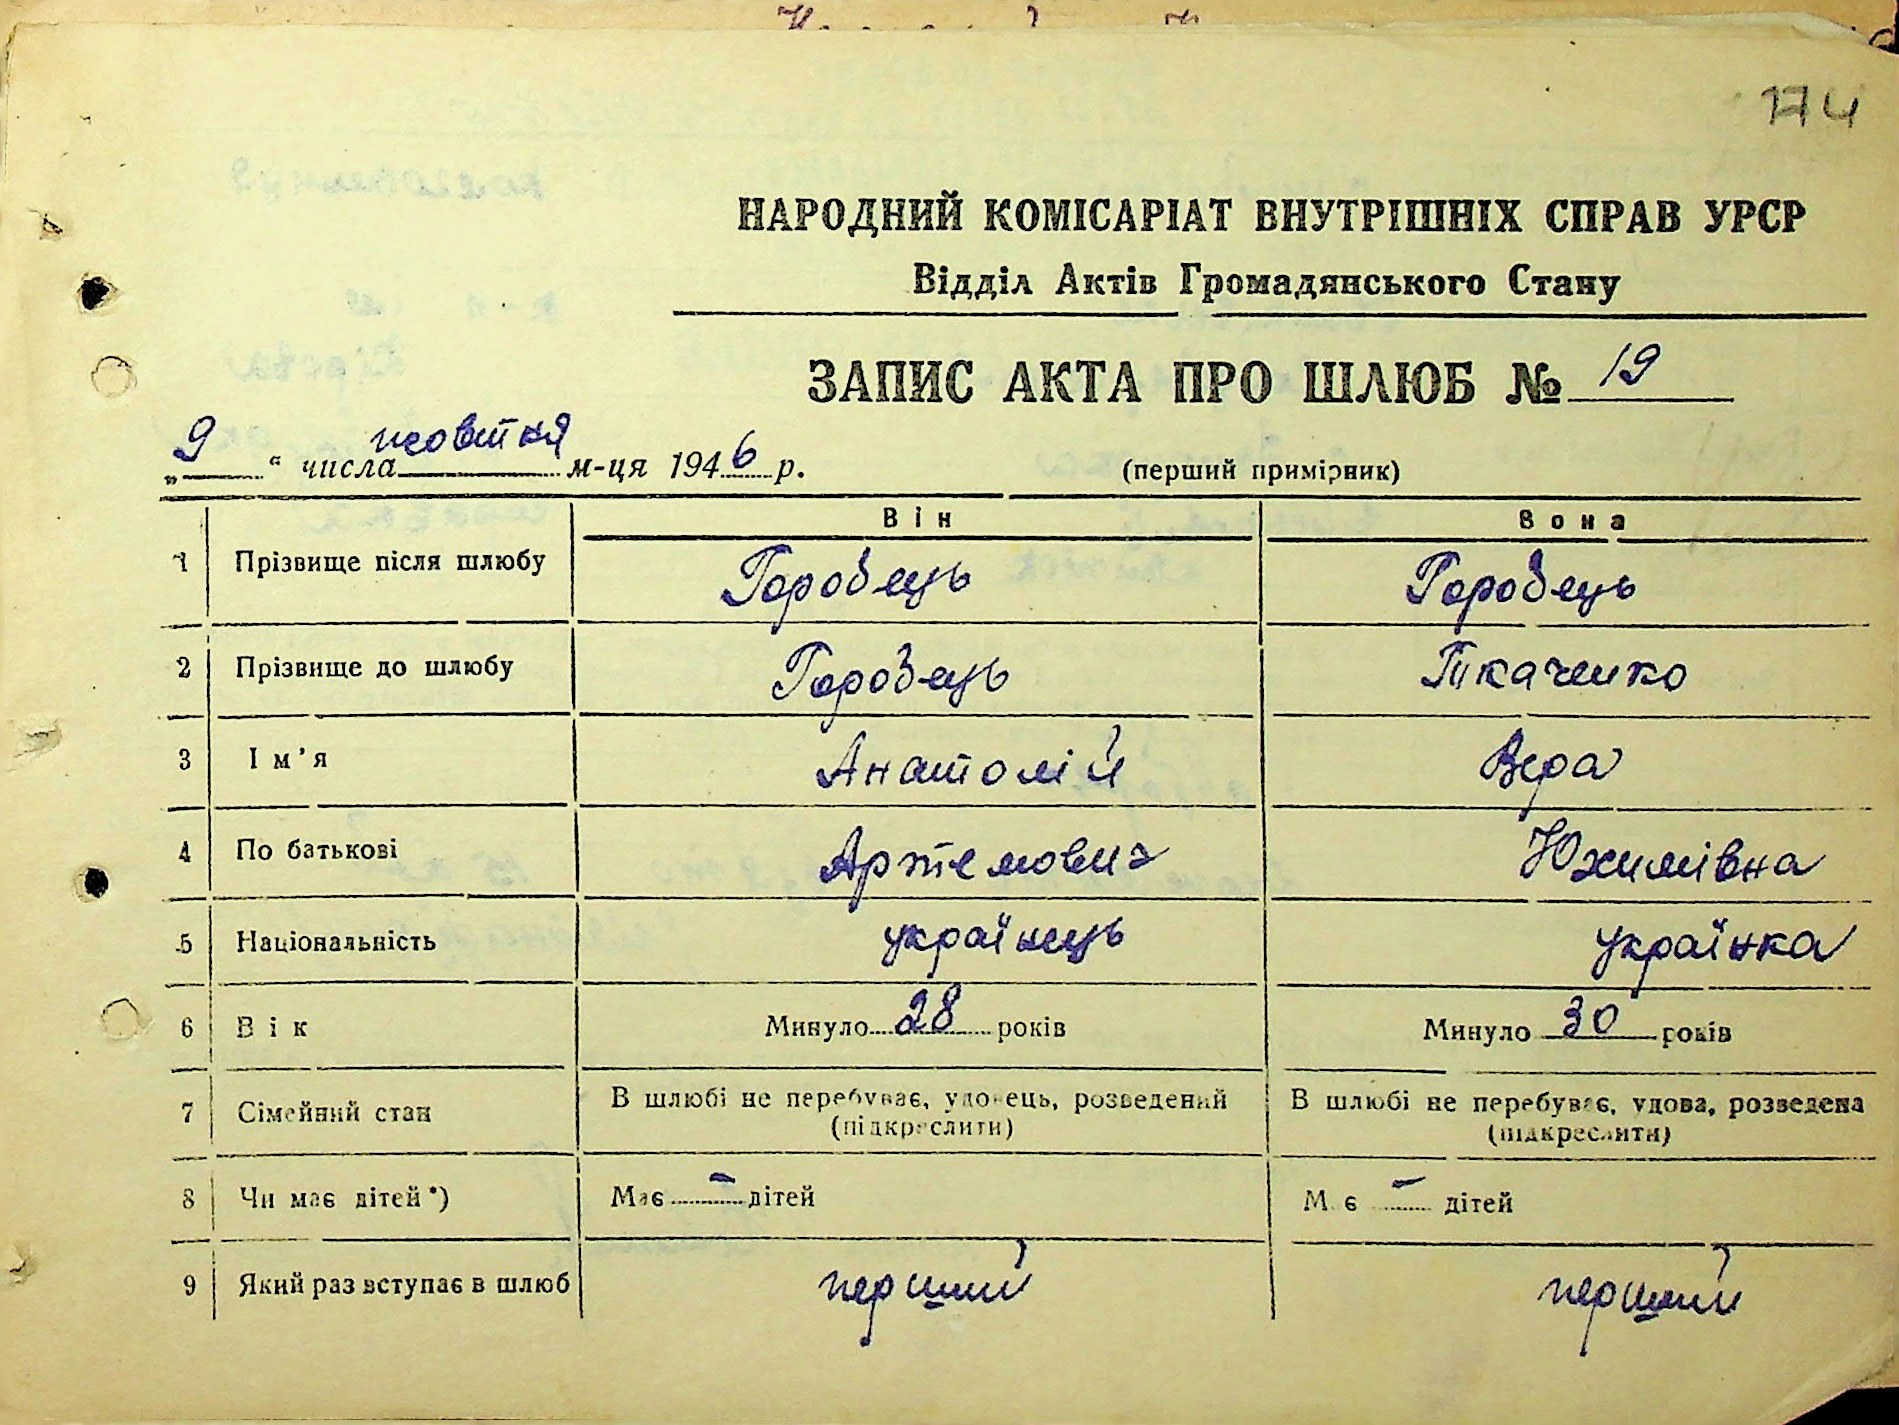 174
НАРОДНИЙ КОМІСАРІАТ ВНУТРІШНІХ СПРАВ УРСР
Відділ Актів Громадянського Стану
ЗАПИС АКТА ПРО ШЛЮБ № 19
„9“ числа жовтня м-ця 1946 р. (перший примірник)
Він Вона
1 Прізвище після шлюбу Горобець Горобець
2 Прізвище до шлюбу Горобець Ткаченко
3 Ім’я Анатолій Вера
4 По батькові Артемович Юхимівна
5 Національність українець українка
6 Вік Минуло 28 років Минуло 30 років
7 Сімейний стан В шлюбі не перебуває, удовець, розведений В шлюбі не перебуває, удова, розведена
(підкреслити) (підкреслити)
8 Чи має дітей*) Має — дітей Має — дітей
9 Який раз вступає в шлюб перший перший